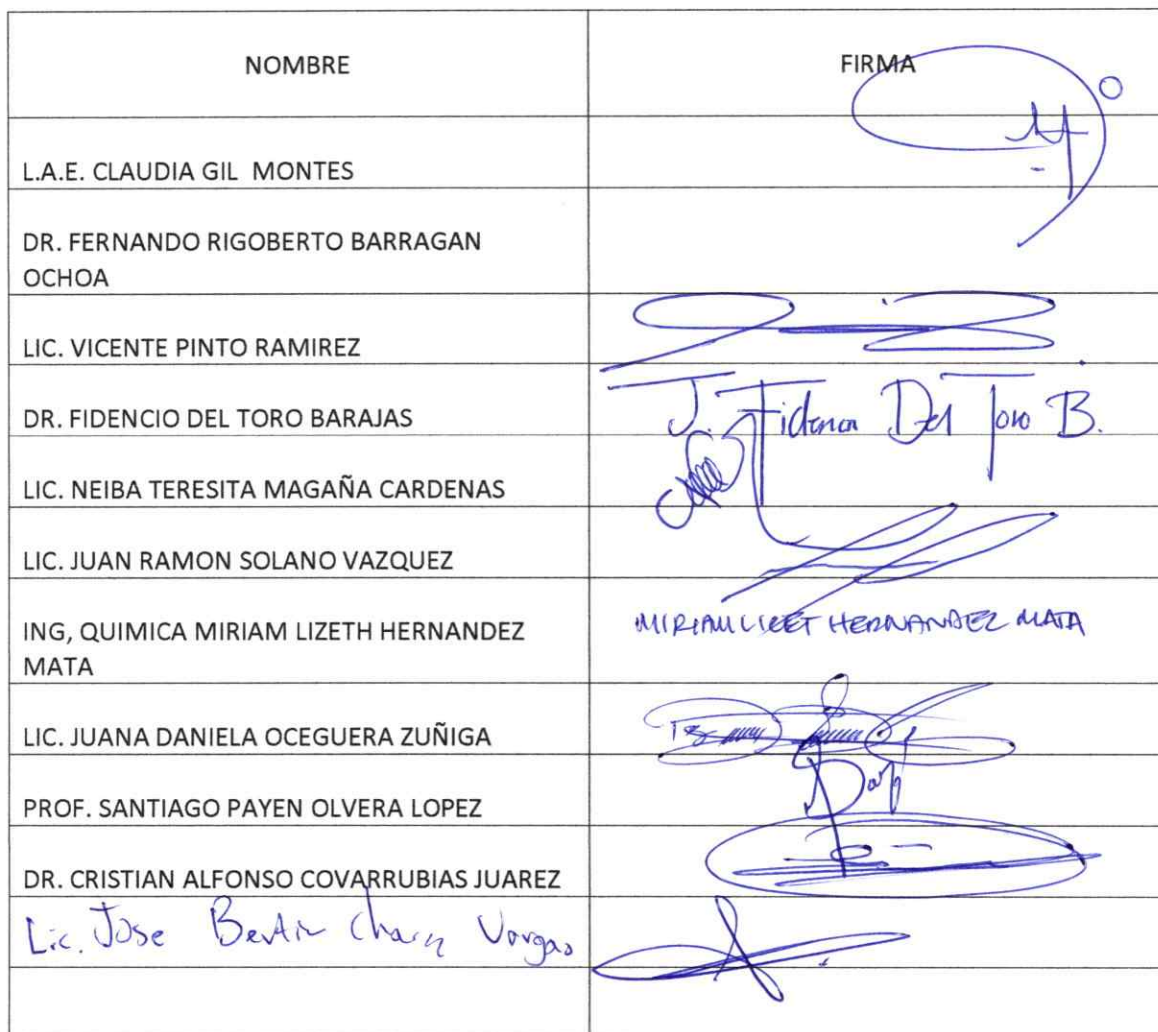 NOMBRE FIRMA
L.A.E. CLAUDIA GIL MONTES
DR. FERNANDO RIGOBERTO BARRAGAN
OCHOA
LIC. VICENTE PINTO RAMIREZ
DR. FIDENCIO DEL TORO BARAJAS J. Fidencio Del Toro B.
LIC. NEIBA TERESITA MAGAÑA CARDENAS
LIC. JUAN RAMON SOLANO VAZQUEZ
ING, QUIMICA MIRIAM LIZETH HERNANDEZ MIRIAM LIZET HERNANDEZ MATA
MATA
LIC. JUANA DANIELA OCEGUERA ZUÑIGA
PROF. SANTIAGO PAYEN OLVERA LOPEZ
DR. CRISTIAN ALFONSO COVARRUBIAS JUAREZ
Lic. Jose Bertin Vargas